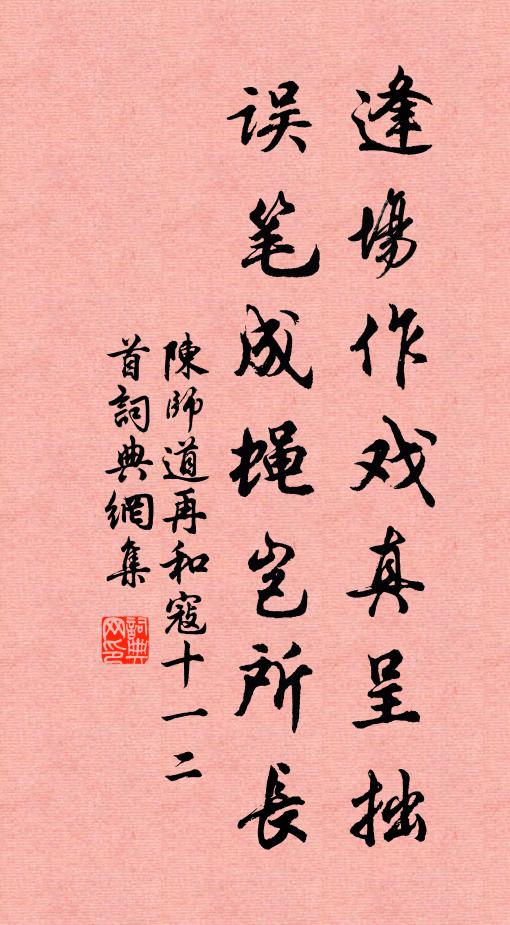 逢場作戏真呈拙
误笔成蝇岂所長
陳師道再和寇十一二
首詞典網集
詞典網印